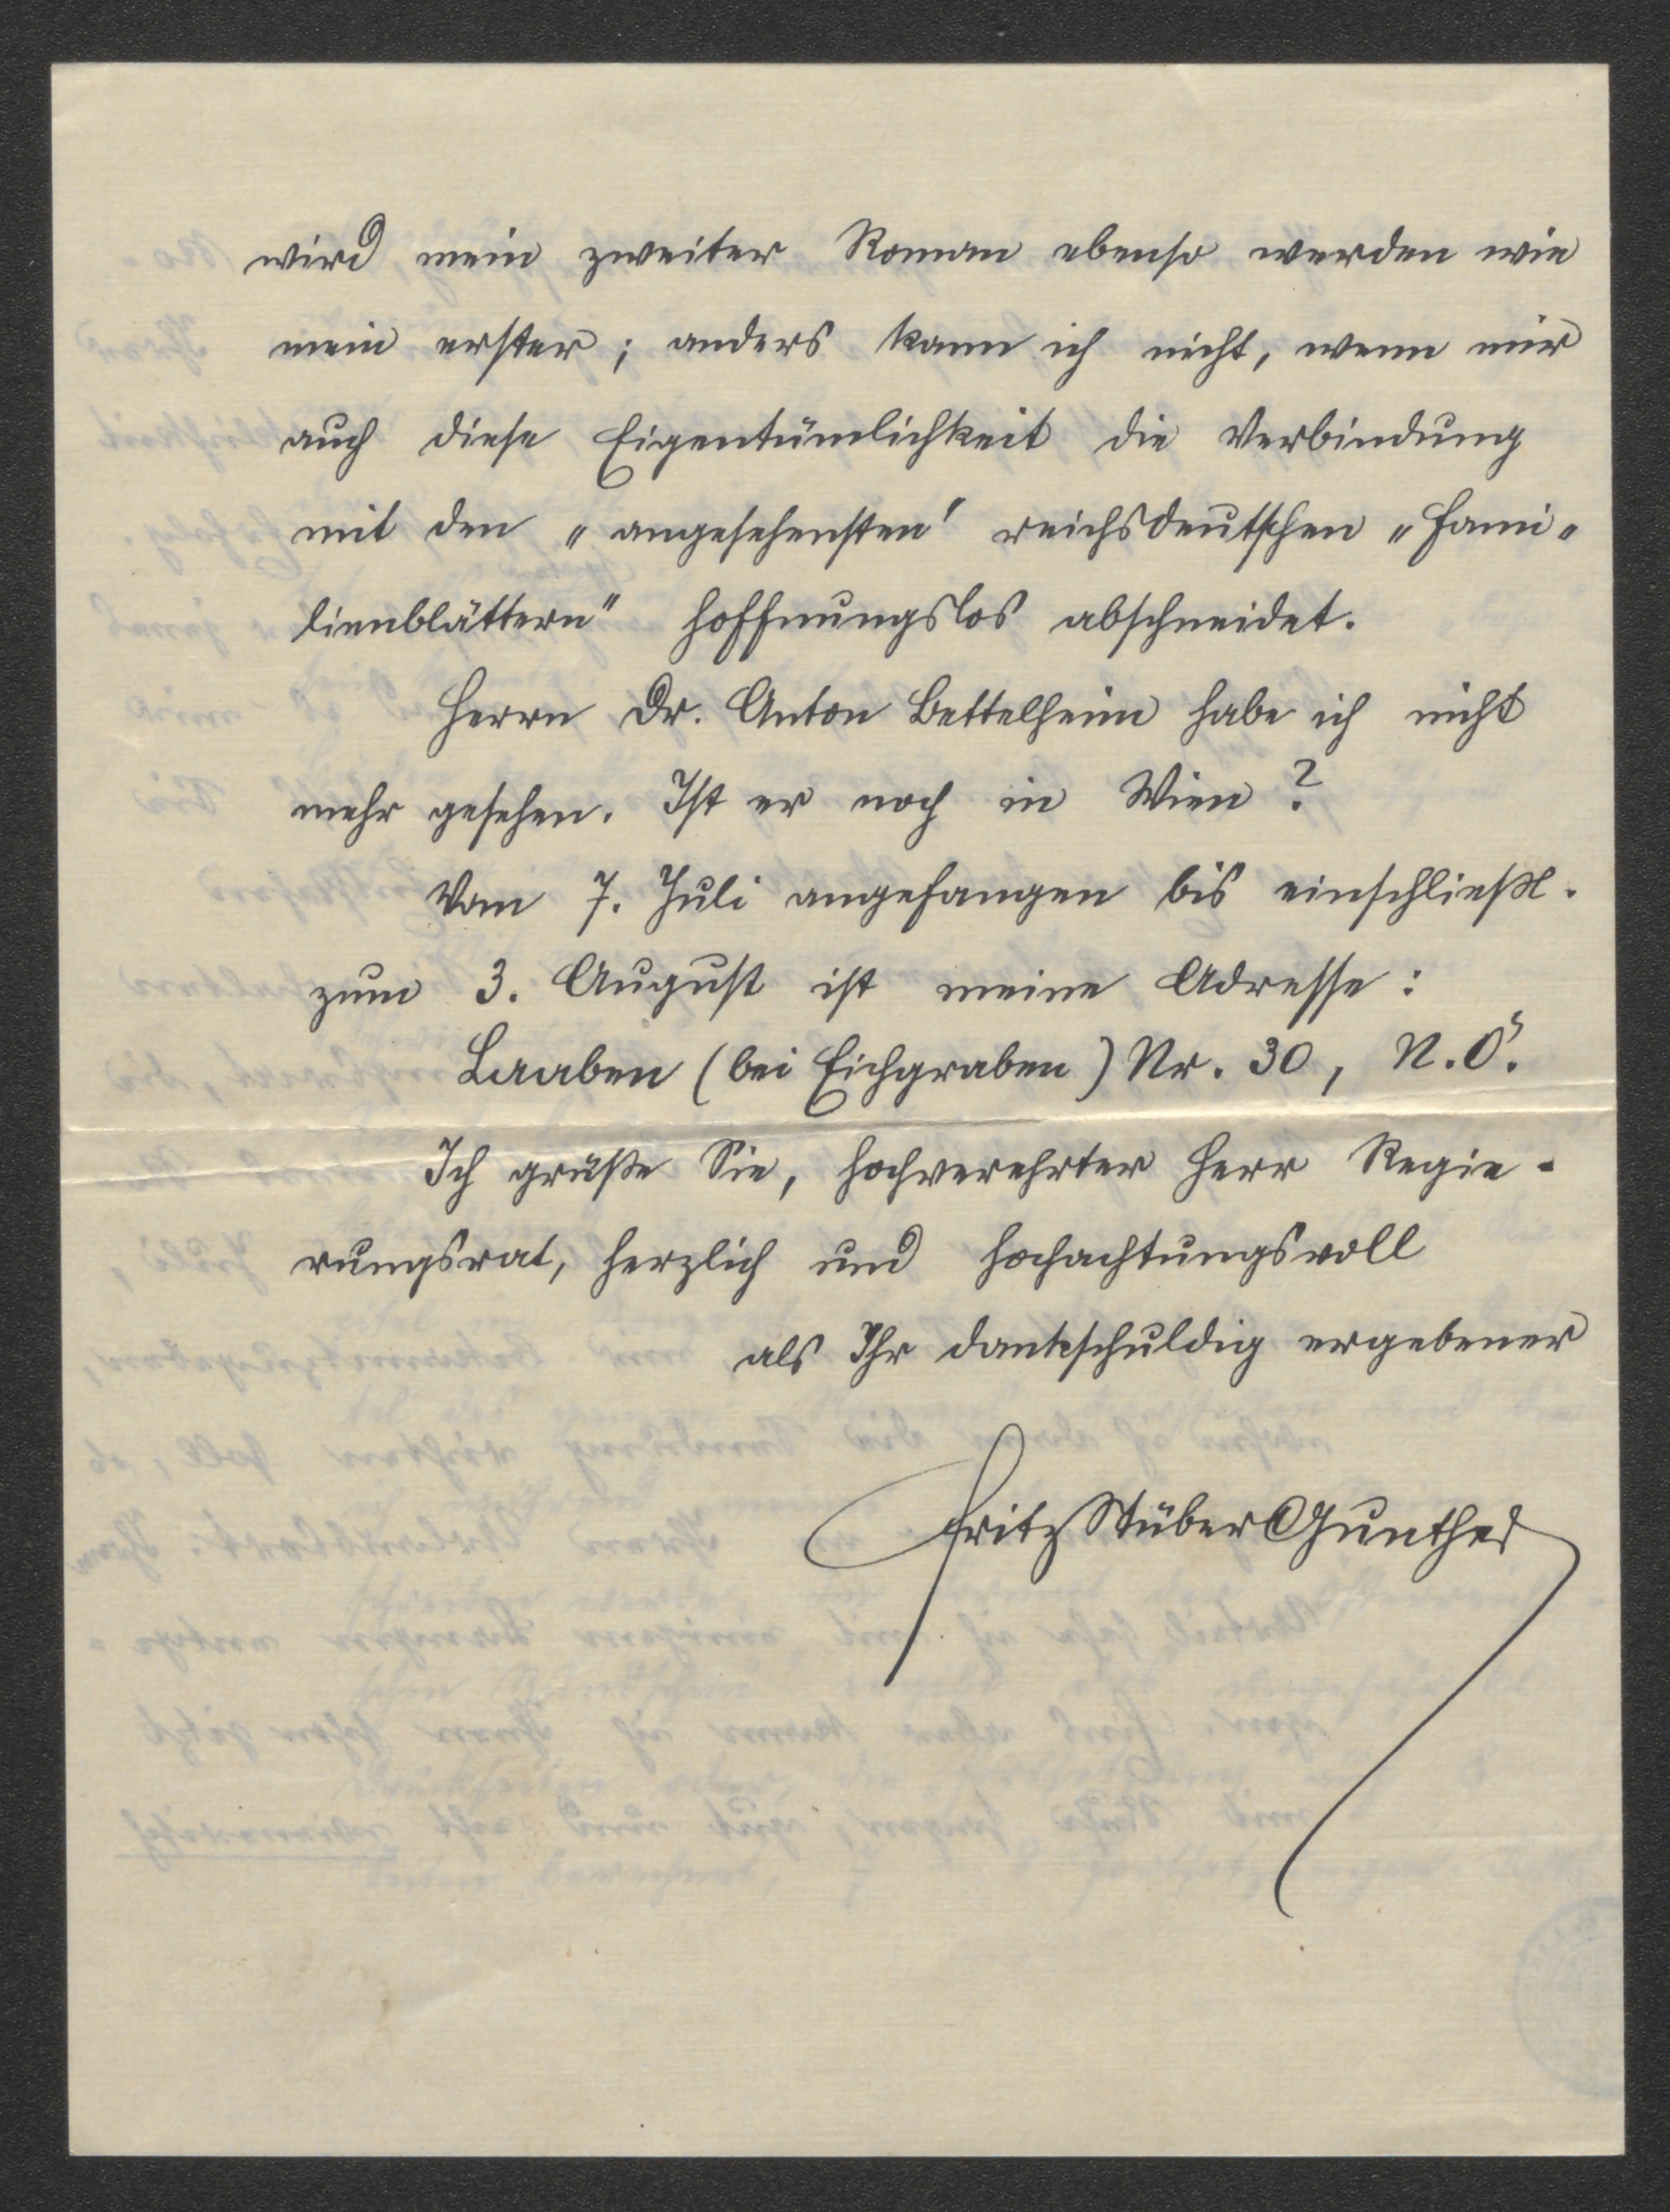 wird mein zweiter Roman ebenso werden wie
mein erster; anders kann ich nicht, wenn mir
auch diese Eigentümlichkeit die Verbindung
mit den „angesehensten" reichsdeutschen „Fami-
lienblättern" hoffnungslos abschneidet.
Herrn Dr. Anton Bettelheim habe ich nicht
mehr gesehen. Ist er noch in Wien?
Vom 7. Juli angefangen bis einschließl.
zum 3. August ist meine Adresse:
Laaben (bei Eichgraben) Nr. 30, N.Ö.
Ich grüße Sie, hochverehrter Herr Regie-
rungsrat, herzlich und hochachtungsvoll
als Ihr dankschuldig ergebener
Fritz Stüber Gunther